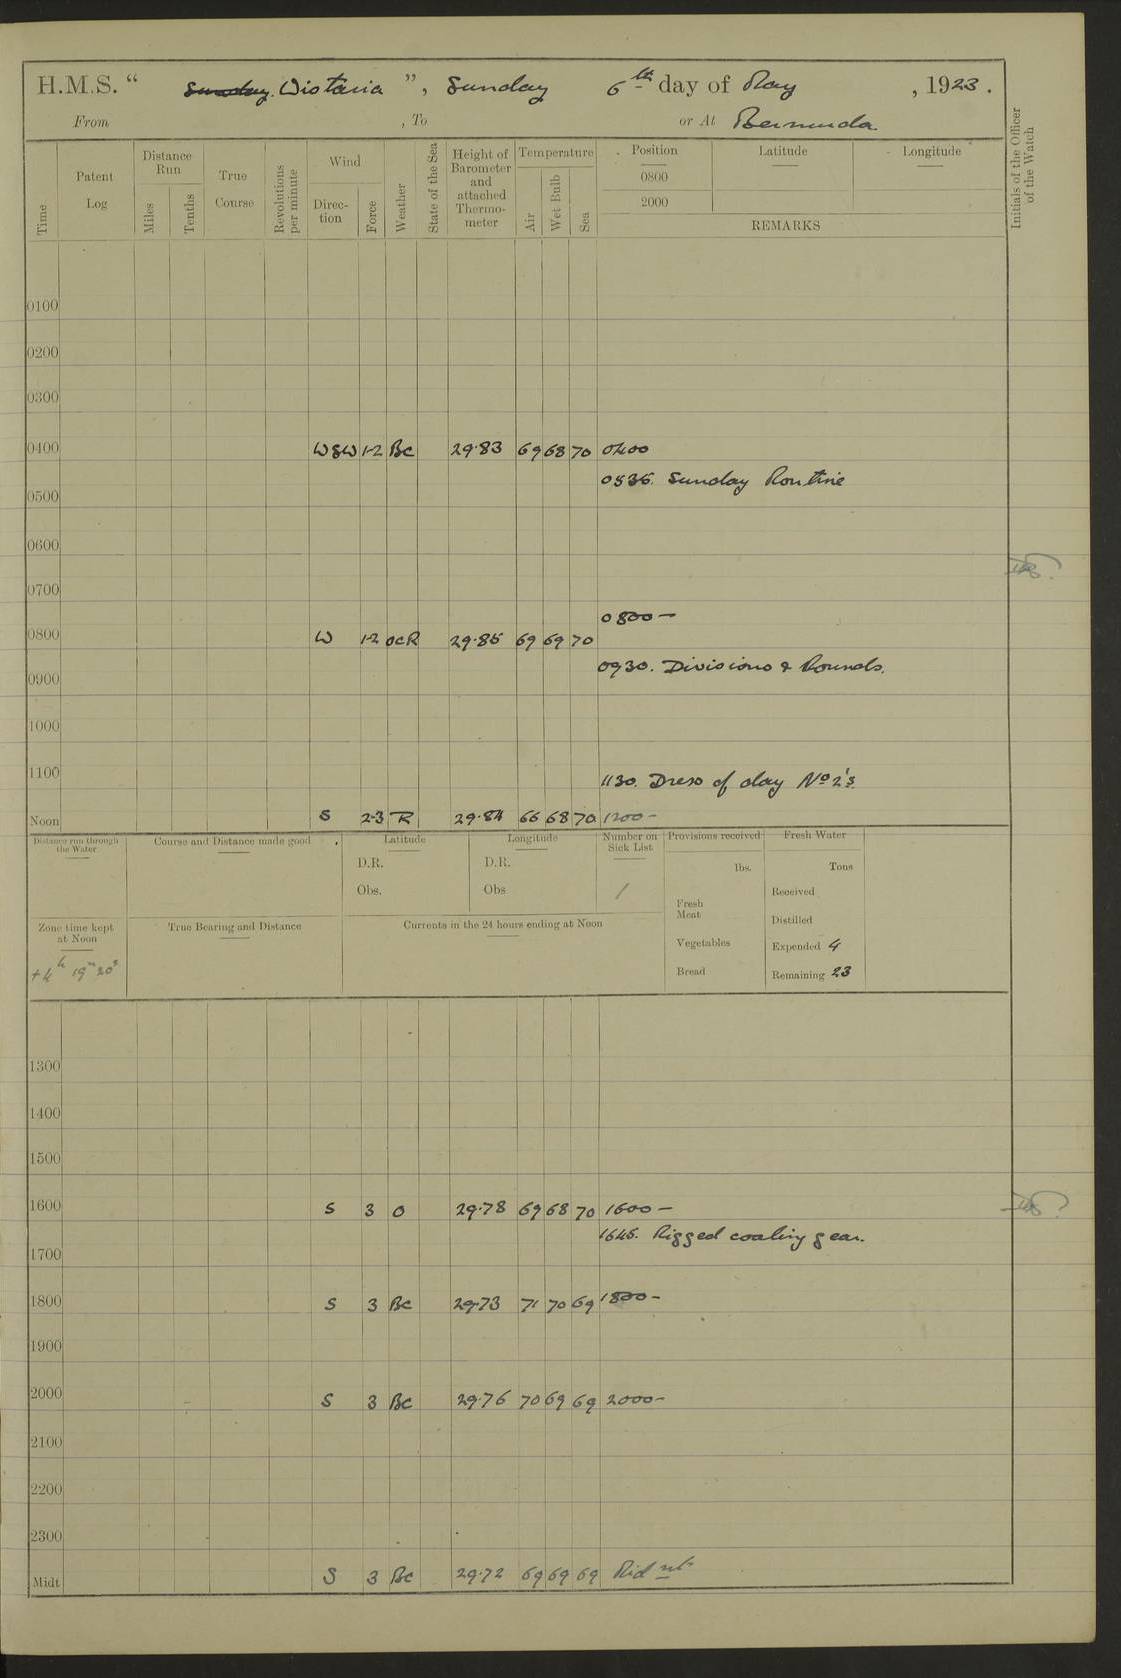 H.M.S. “ Sunday. Wistaria ”, Sunday 6th day of May , 1923 .
From , To or At Bermuda.
Time Patent Log Distance Run Miles Tenths True Course Revolutions per minute Wind Direction Force Weather State of the Sea Height of Barometer and attached Thermometer Temperature Air Wet Bulb Sea Position 0800 2000 Latitude Longitude REMARKS Initials of the Officer of the Watch
0100
0200
0300
0400 WSW 1-2 Bc 29.83 69 68 70 0400
0535. Sunday Routine
0500
0600
0700
0800 —
0800 W 1-2 ocR 29.85 69 69 70
0930. Divisions & Rounds.
0900
1000
1100
1130. Dress of day No 2's.
Noon S 2-3 R 29.84 66 68 70 1200 –
Distance run through the Water Course and Distance made good Latitude Longitude Number on Sick List Provisions received Fresh Water
D.R. D.R. lbs. Tons
Obs. Obs 1 Received
Fresh Meat
Zone time kept at Noon True Bearing and Distance Currents in the 24 hours ending at Noon Distilled
Vegetables Expended 4
+4h 19m 20s Bread Remaining 23
1300
1400
1500
1600 S 3 O 29.78 69 68 70 1600 —
1645. Rigged coaling gear.
1700
1800 S 3 Bc 29.73 71 70 69 1800 –
1900
2000 S 3 Bc 29.76 70 69 69 2000 –
2100
2200
2300
Midt S 3 Bc 29.72 69 69 69 Midnt